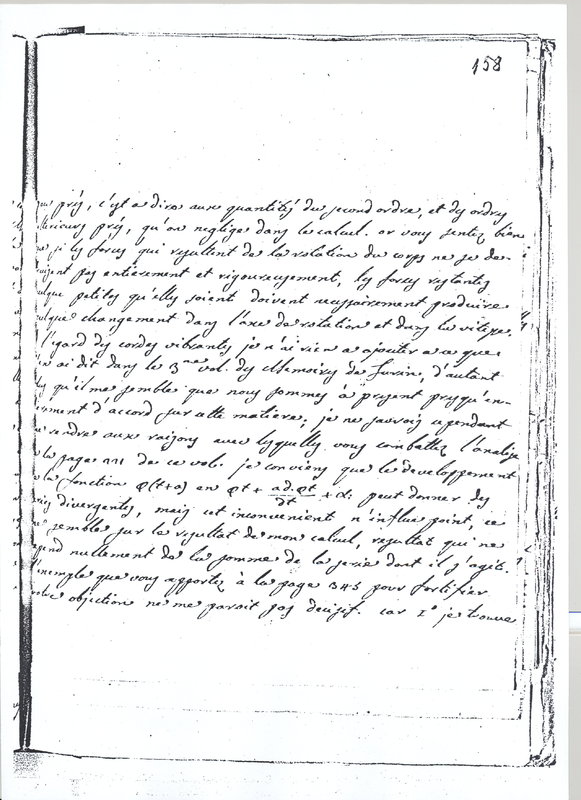 158
près, c'est a dire aux quantités du second ordre, et des ordres
ultérieurs près, qu'on neglige dans le calcul. or vous sentez bien
si les forces qui resultent de la rotation du corps ne se de-
pas entièrement et rigoureusement, les forces restantes
petites qu'elles soient doivent necessairement produire
changement dans l'axe de rotation et dans la vitesse.
l'égard des cordes vibrantes je n'ai rien a ajouter a ce que
ai dit dans le 3me vol. des Memoires de Turin, d'autant
qu'il me semble que nous sommes à present presqu'en-
d'accord sur cette matiere; je ne saurois cependant
rendre aux raisons avec lesquelles vous combattez l'analyse
la page 111 de ce vol. je conviens que le developpement
la fonction φ(t+a) en φt + ad.φt/dt + &. peut donner des
divergentes, mais cet inconvenient n'influe point, ce
semble sur le resultat de mon calcul, resultat qui ne
nullement de la somme de la serie dont il s'agit.
l'exemple que vous apportez à la page 345 pour fortifier
votre objection ne me paroit pas decisif. car 1° je trouve